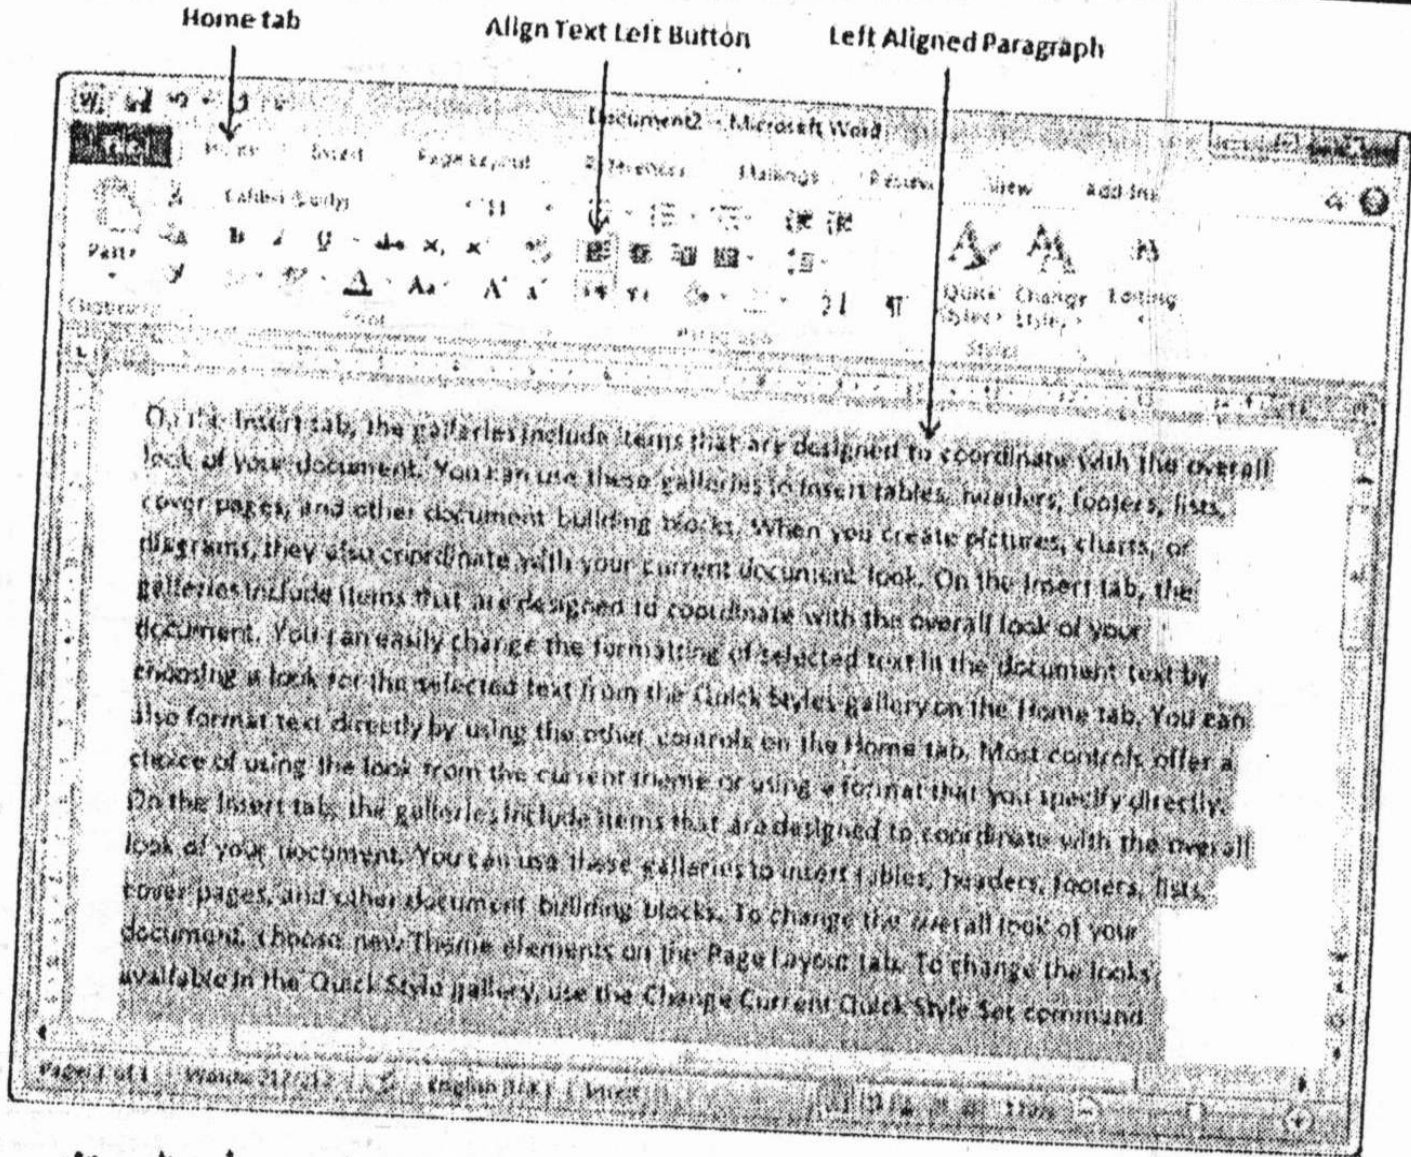 Home tab
Align Text Left Button
Left Aligned Paragraph
Document2 - Microsoft Word
File Home Insert Page Layout References Mailings Review View Add-Ins
Calibri (Body) 11
Paste
Quick Styles Change Styles Editing
Clipboard Font Paragraph Styles
On the Insert tab, the galleries include items that are designed to coordinate with the overall
look of your document. You can use these galleries to insert tables, headers, footers, lists,
cover pages, and other document building blocks. When you create pictures, charts, or
diagrams, they also coordinate with your current document look. On the Insert tab, the
galleries include items that are designed to coordinate with the overall look of your
document. You can easily change the formatting of selected text in the document text by
choosing a look for the selected text from the Quick Styles gallery on the Home tab. You can
also format text directly by using the other controls on the Home tab. Most controls offer a
choice of using the look from the current theme or using a format that you specify directly.
On the Insert tab, the galleries include items that are designed to coordinate with the overall
look of your document. You can use these galleries to insert tables, headers, footers, lists,
cover pages, and other document building blocks. To change the overall look of your
document, choose new Theme elements on the Page Layout tab. To change the looks
available in the Quick Style gallery, use the Change Current Quick Style Set command
Page: 1 of 1 Words: English Insert